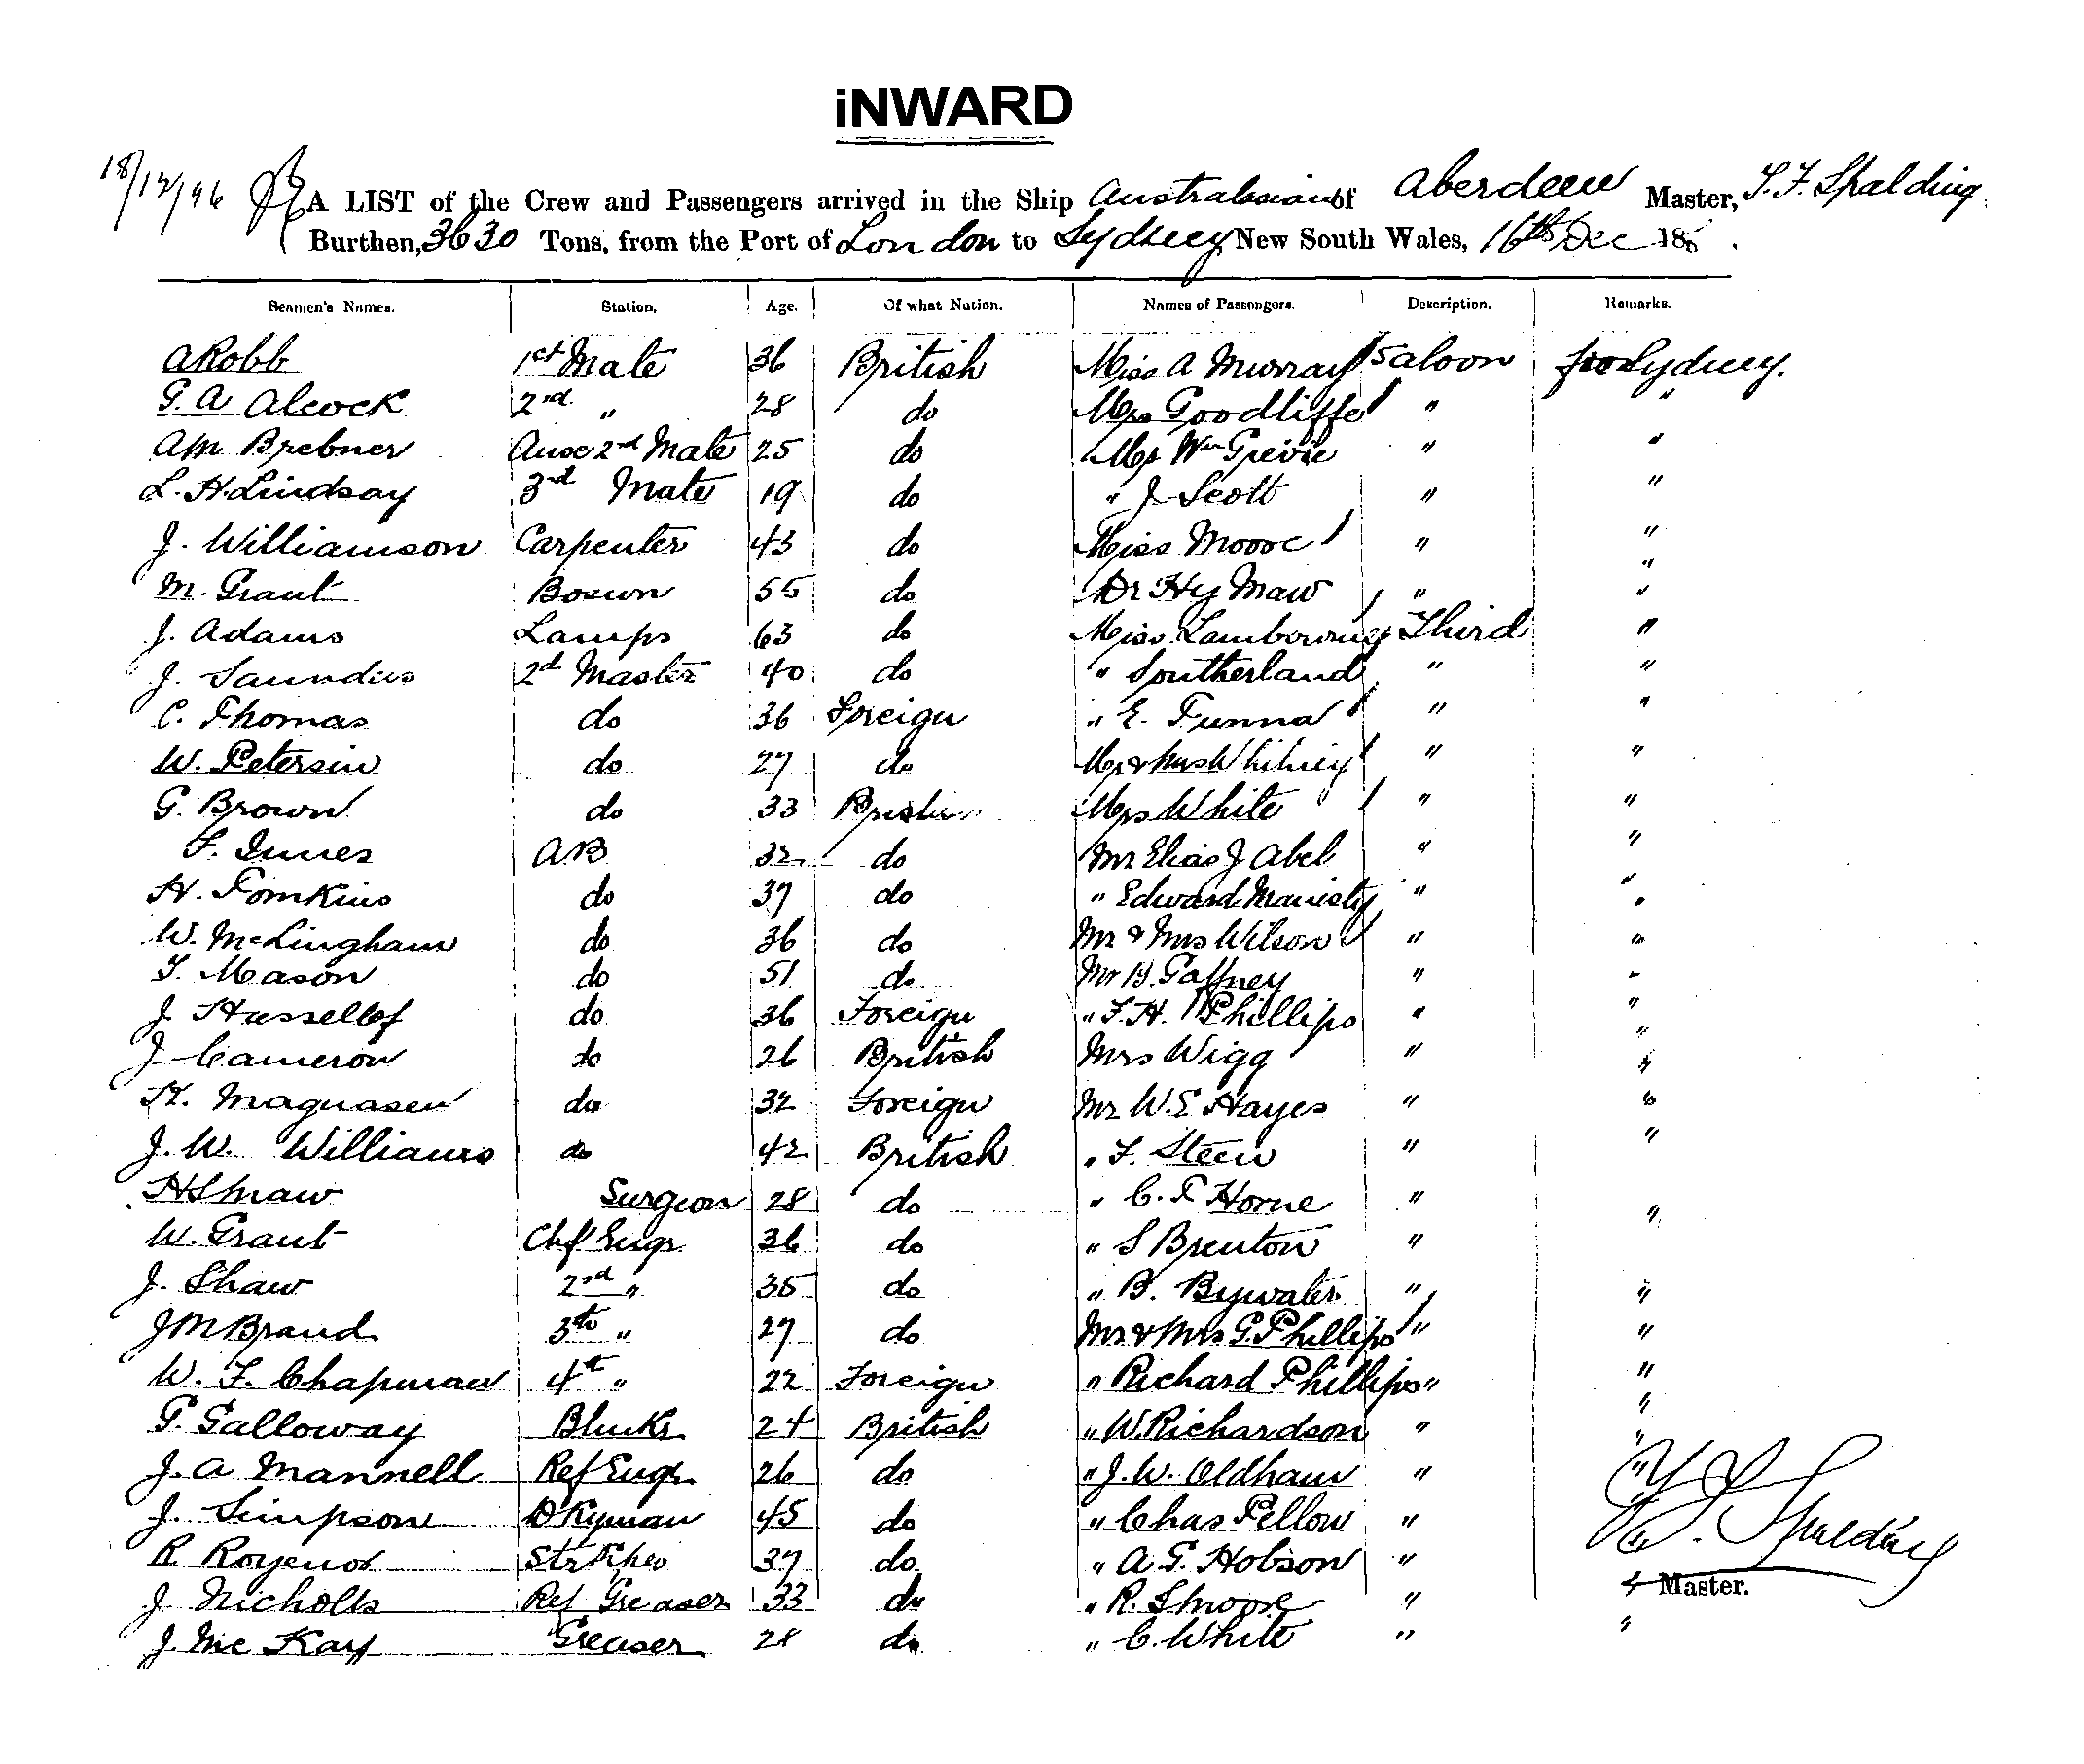 iNWARD
18/12/96 A LIST of the Crew and Passengers arrived in the Ship Australasian of Aberdeen Master, T. F. Spalding
Burthen, 3630 Tons, from the Port of London to Sydney New South Wales, 16th Dec 18
Seamen's Names. Station. Age. Of what Nation. Names of Passengers. Description. Remarks.
A Robb 1st Mate 36 British Miss A Murray Saloon for Sydney.
G. A Alcock 2nd " 28 do Mrs Goodliffe " "
A M Brebner 2nd Mate 25 do Mr Wm " "
L. H. Lindsay 3rd Mate 19 do " J Scott " "
J. Williamson Carpenter 43 do Miss Moore " "
M. Grant Bosun 55 do Dr Hy Maw " "
J. Adams Lamps 63 do Miss Third "
J. Saunders 2d Master 40 do " Southerland " "
C. Thomas do 36 Foreign " E. " "
W. Petersin do 27 do Mr & Mrs " "
G. Brown do 33 British Mrs White " "
F. Innes AB 32 do Mr Elias J Abel " "
H. Tomkins do 37 do " Edward " "
W. do 36 do Mr & Mrs Wilson " "
T. Mason do 51 do Mr Gaffney " "
J do 36 Foreign " F. H. Phillips " "
J Cameron do 26 British Mrs Wigg " "
K. Magnasen do 32 Foreign Mr W. E Hayes " "
J. W. Williams do 42 British " F. Steen " "
Surgeon 28 do " C. F Horne " "
W. Grant Chf Engr 36 do " S Brenton " "
J. Shaw 2nd " 35 do " B. Bywater " "
J M Brand 3th " 27 do Mr & Mrs G. Phillips " "
W. F. Chapman 4th " 22 Foreign " Richard Phillips " "
G. Galloway 24 British " W. Richardson " "
J. A Mannell Ref Engr 26 do " J. W. Oldham " "
J. Simpson DKyman 45 do " Chas Pellow " "
R. 37 do " A. G. Hobson " "
T F. Spalding
Master.
J Nicholls Ref Greaser 33 do " R. " "
J. Mc Kay Greaser 28 do " C. White " "